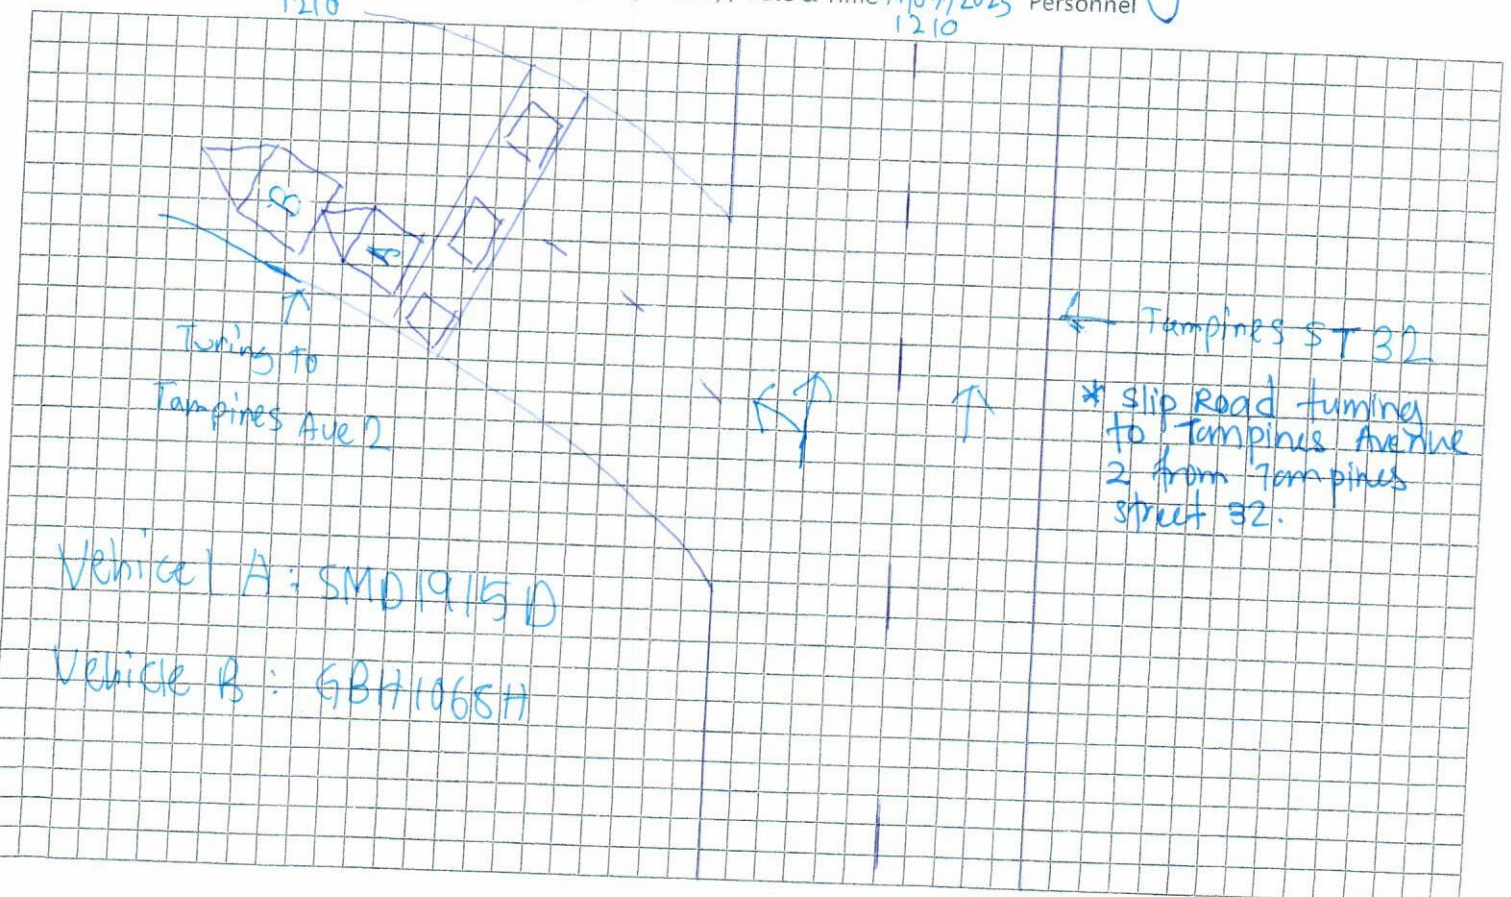 1210
& Time
/2023 Personnel
1210
B
A
Turing to
Tampines Ave 2
← Tampines ST 32
* Slip Road turning
to Tampines Avenue
2 from Tampines
street 32.
Vehicel A : SMD1915D
Vehicle B : GBH1068H